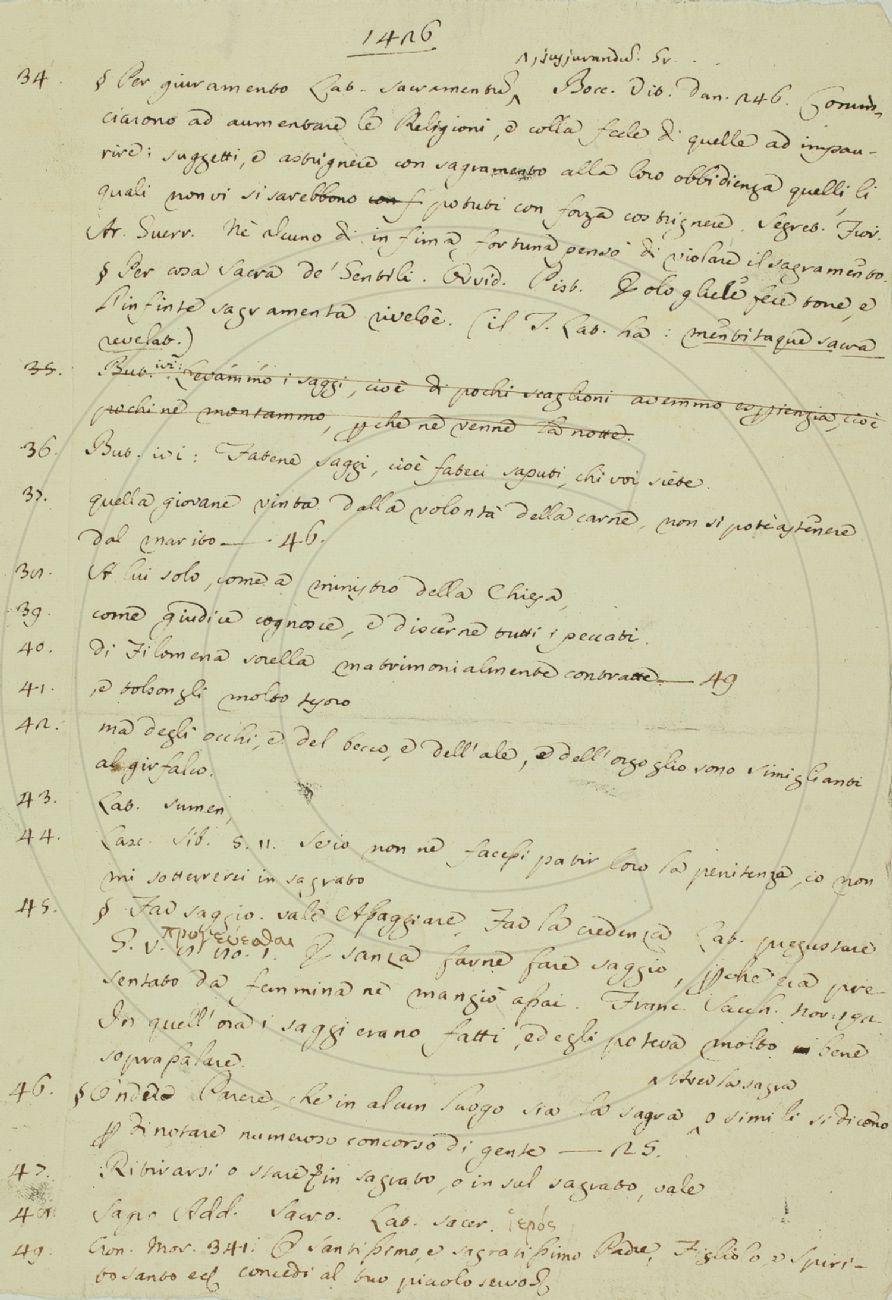 1426
jusjurandū. Gr. . .
34. § Per giuramento Lat. sacramentū, Bocc. Vit. Dan. 246. Comin-
ciarono ad aumentare le Religioni, e colla fede di quelle ad impau-
rire i suggetti, e astrignere con sagramento alla loro obbidienza quelli, li
quali non vi si sarebbono potuti con forza costrignere. Segret. Fior.
Ar. Guerr. Nè alcuno di infima fortuna pensò di violare il sagramento.
§ Per cosa sacra de' Gentili. Ovvid. Pist. Tolo gliele fece torre, e
l'infinte sagramenta rivelòe. (il T. Lat. ha: mentitaque sacra
revelat.)
35. But. ivi: Levammo i saggi, cioè di pochi scaglioni avemmo esperienza, cioè
pochi ne montammo, perchè ne venne la notte.
36. But. ivi: Fatene saggi, cioè fateci saputi, chi voi siete.
37. quella giovane vinta dalla volontà della carne, non si potè astenere
dal marito — . 46.
38. A lui solo, come a ministro della Chiesa,
39. come giudice cognosce, e discerne tutti i peccati.
40. di Filomena sorella matrimonialmente contratte — 49
41. e tolsongli molto tesoro
42. ma degli occhi, e del becco, e dell'ale, e dell'orgoglio sono simiglianti
al girfalco.
43. Lat. sumen,
44. Lasc. Sib. 5. 11. Se io non ne facessi patir loro la penitenza, io non
mi sotterrerei in sagrato
45. § Far saggio. vale Assaggiare, Far la credenza Lat. pregustare
G. προγεύεσθαι
G. V. 11. 110. 1. E sanza farne fare saggio, perchè era pre-
sentato da femmina ne mangiò assai. Franc. Sacch. nov. 192.
In quell'ora i saggi erano fatti, ed egli poteva molto bene
soprassalare.
46. § Ondeche Parere, che in alcun luogo sia la sagra o simili si dicono
per dinotare numeroso concorso di gente — 25.
47. Ritirarsi o stare in sagrato, o in sul sagrato, vale
48. Sagro Add. Sacro. Lat. sacer. ἱερός
49. Cron. Mor. 341: O Santissimo, e sagratissimo Padre, Figliolo, e Spiri-
to santo ec. concedi al tuo piccolo servo